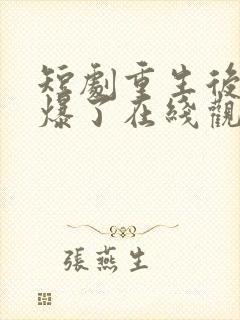 短劇重生後
爆了在綫觀
張燕生